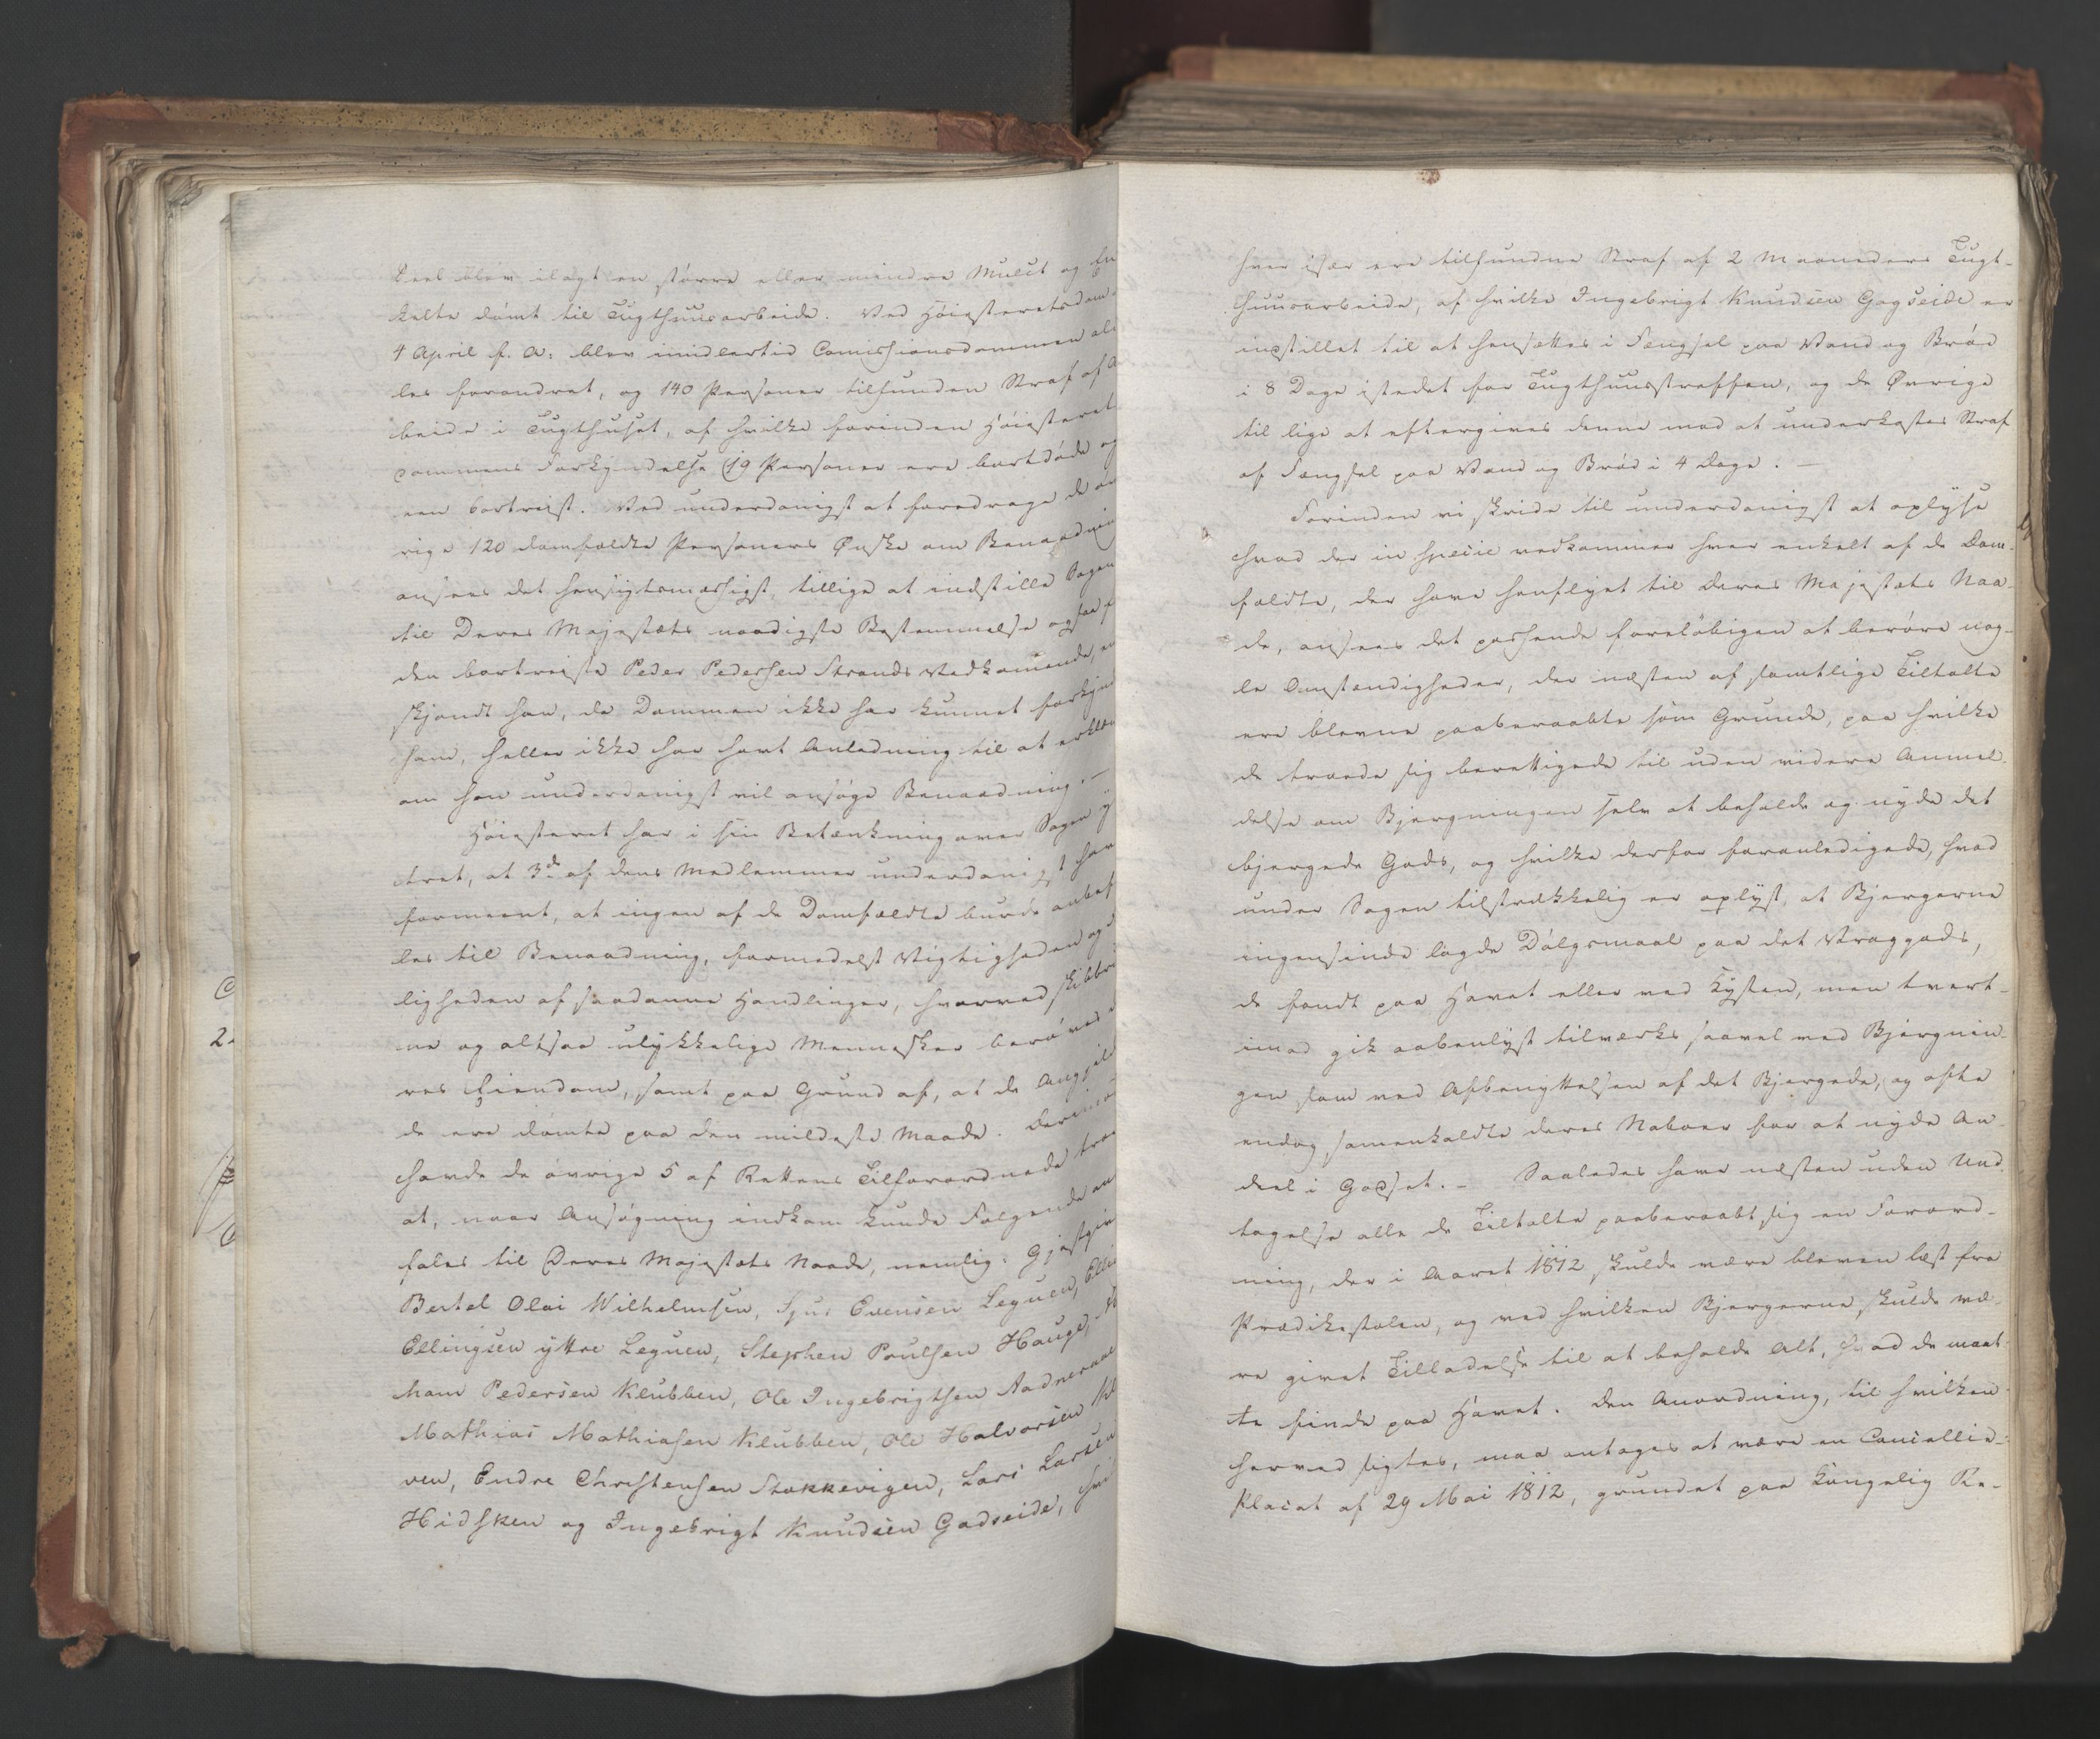 Deel blev ilagt en större eller mindre Mulct og En
kelte dömt til Tugthuusarbeide. Ved Höiesteretsdom
4 April f. A: blev imidlertid Comissionsdommen al
les forandret, og 140 Personer tilfunden Straf af A
beide i Tugthuset, af hvilke forinden Höiesteret
dommens Forkyndelse 19 Personer ere bortdöde og
een bortreist. Ved underdanigst at foredrage de öv
rige 120 domfældte Personers Ønske om Benaadnin
ansees det hensigtsmæssigst, tillige at indstille Sagen
til Deres Majestæts naadigste Bestemmelse ogsaa f
den bortreiste Peder Pedersen Strands Vedkomende, en
skjöndt han, da Dommen ikke har kunnet forkynd
ham, heller ikke har havt Anledning til at erklær
om han underdanigst vil ansöge Benaadning. —
Höiesteret har i sin Betænkning over Sagen y
tret, at 3de af dens Medlemmer underdanigst har
formeent, at ingen af de Domfældte burde anbef
les til Benaadning, formedelst Vigtigheden og
ligheden af saadanne Handlinger, hvorved skibbr
ne og altsaa ulykkelige Mennesker beröves
res Eiendom, samt paa Grund af, at de Angjeld
de ere dömte paa den mildeste Maade. Derimo
havde de övrige 5 af Rettens Tilforordnede troe
at, naar Ansögning indkom kunde Fölgende an
fales til Deres Majestæts Naade, nemlig: Gjæstgiv
Bertel Olai Wilhelmsen, Sjur Evensen Legnen, Elli
Ellingsen yttre Legnen, Stephen Poulsen Hauge,
hans Pedersen Klubben, Ole Ingebrigtsen Aadneraae
Mathias Mathiasen Klubben, Ole Halvorsen Kl
ven, Endre Christensen Stokkevigen, Lars Larsen
Hidsken og Ingebrigt Knudsen Godseide, hvi
hver især ere tilfundne Straf af 2 Maaneders Tugt-
huusarbeide, af hvilke Ingebrigt Knudsen Gogseide er
indstillet til at hensættes i Fængsel paa Vand og Bröd
i 8 Dage istedet for Tugthuusstraffen, og de Øvrige
til lige at eftergives denne mod at underkastes Straf
af Fængsel paa Vand og Bröd i 4 Dage. —
Forinden vi skride til underdanigst at oplyse
hvad der in specie vedkommer hver enkelt af de Dom-
fældte, der have henflyet til Deres Majestæts Naa-
de, ansees det passende foreløbigen at beröre nog-
le Omstændigheder, der næsten af samtlige Tiltalte
ere blevne paaberaabte som Grunde, paa hvilke
de troede sig berettigede til uden videre Anmel-
delse om Bjergningen selv at beholde og nyde det
bjergede Gods, og hvilke derfor foranledigede, hvad
under Sagen tilstrækkelig er oplyst, at Bjergerne
ingensinde lagde Dölgsmaal paa det Vraggods,
de fandt paa Havet eller ved Kysten, men tvert-
imod gik aabenlyst tilværks saavel ved Bjergnin-
gen som ved Afbenyttelsen af det Bjergede, og ofte
endog samenkaldte deres Naboer for at nyde An-
deel i Godset. — Saaledes have næsten uden Und-
tagelse alle de Tiltalte paaberaabt sig en Forord-
ning, der i Aaret 1812 skulde være bleven læst fra
Prædikestolen, og ved hvilken Bjergerne skulde væ-
re givet Tilladelse til at beholde Alt, hvad de maat-
te finde paa Havet. Den Anordning, til hvilken
herved sigtes, maa antages at være en Cancellie-
Placat af 29 Mai 1812, grundet paa Kongelig Re-